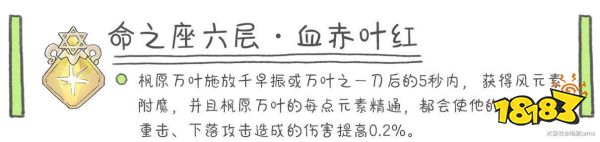 命之座六层·血赤叶红
枫原万叶施放千早振或万叶之一刀后的5秒内，获得风元素
附魔，并且枫原万叶的每点元素精通，都会使他的
重击、下落攻击造成的伤害提高0.2%。
18183